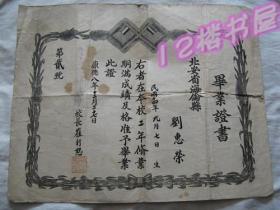 12楼书屋
畢業證書
北安省海倫縣
劉惠榮
民國 年九月七日生
右者在本校二年修業
期滿成績及格准予畢業
此證
康德八年十二月二十七日
校長崔
第貳號